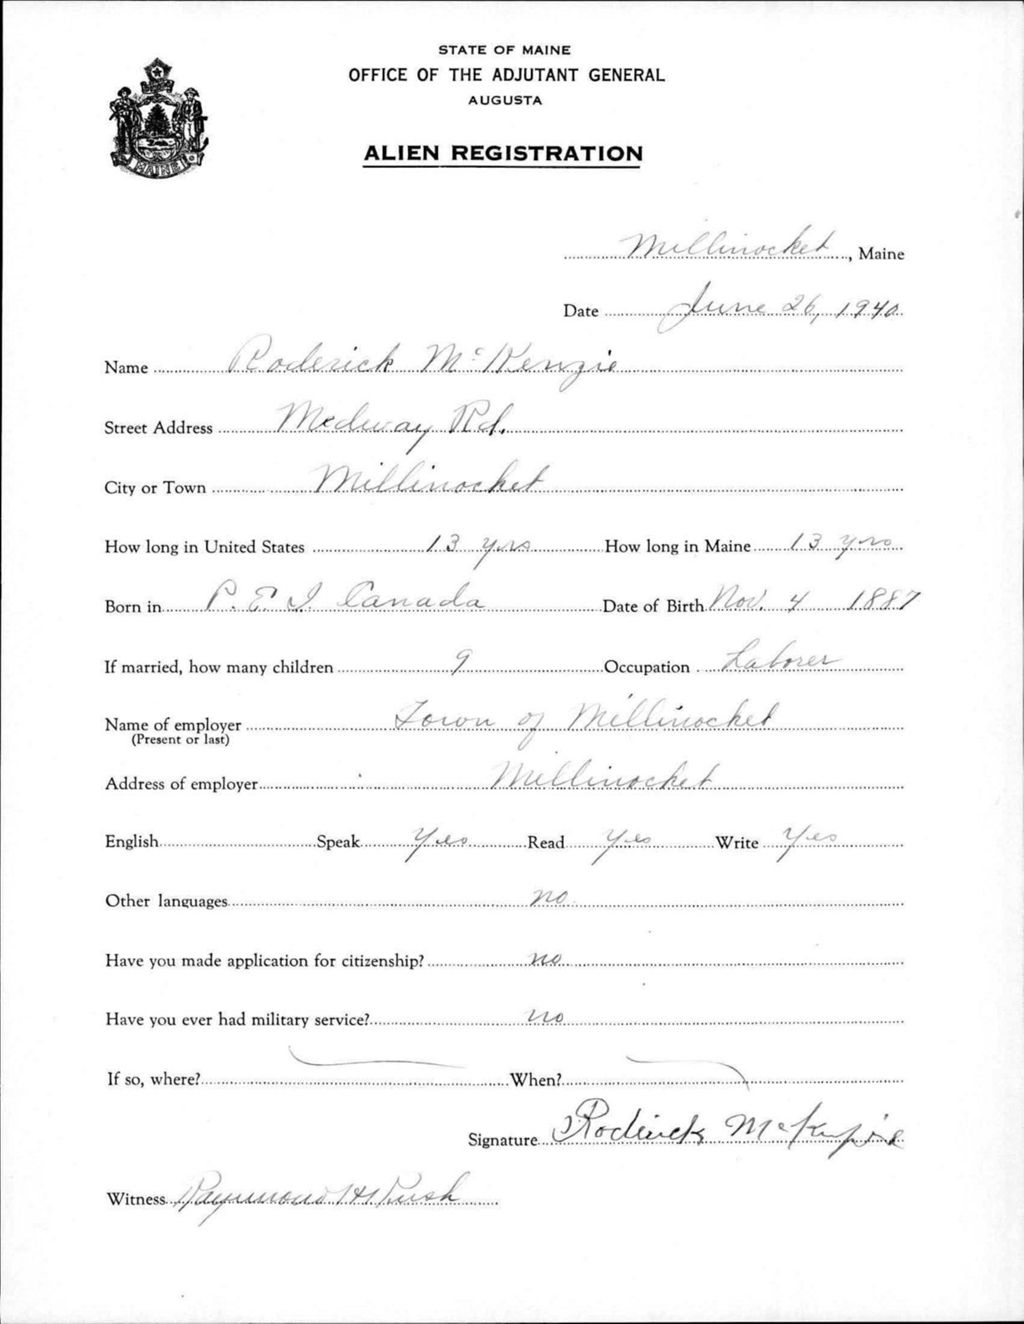 STATE OF MAINE
OFFICE OF THE ADJUTANT GENERAL
AUGUSTA
ALIEN REGISTRATION
MAINE
Millinocket, Maine
Date June 26, 1940
Name Roderick McKenzie
Street Address Medway Rd.
City or Town Millinocket
How long in United States 13 yrs How long in Maine 13 yrs
Born in P. E. I. Canada Date of Birth Nov. 4 1887
If married, how many children 9 Occupation Laborer
Name of employer Town of Millinocket
(Present or last)
Address of employer Millinocket
English Speak Yes Read Yes Write Yes
Other languages no
Have you made application for citizenship? no
Have you ever had military service? no
If so, where? When?
Signature Roderick McKenzie
Witness Raymond H Rush